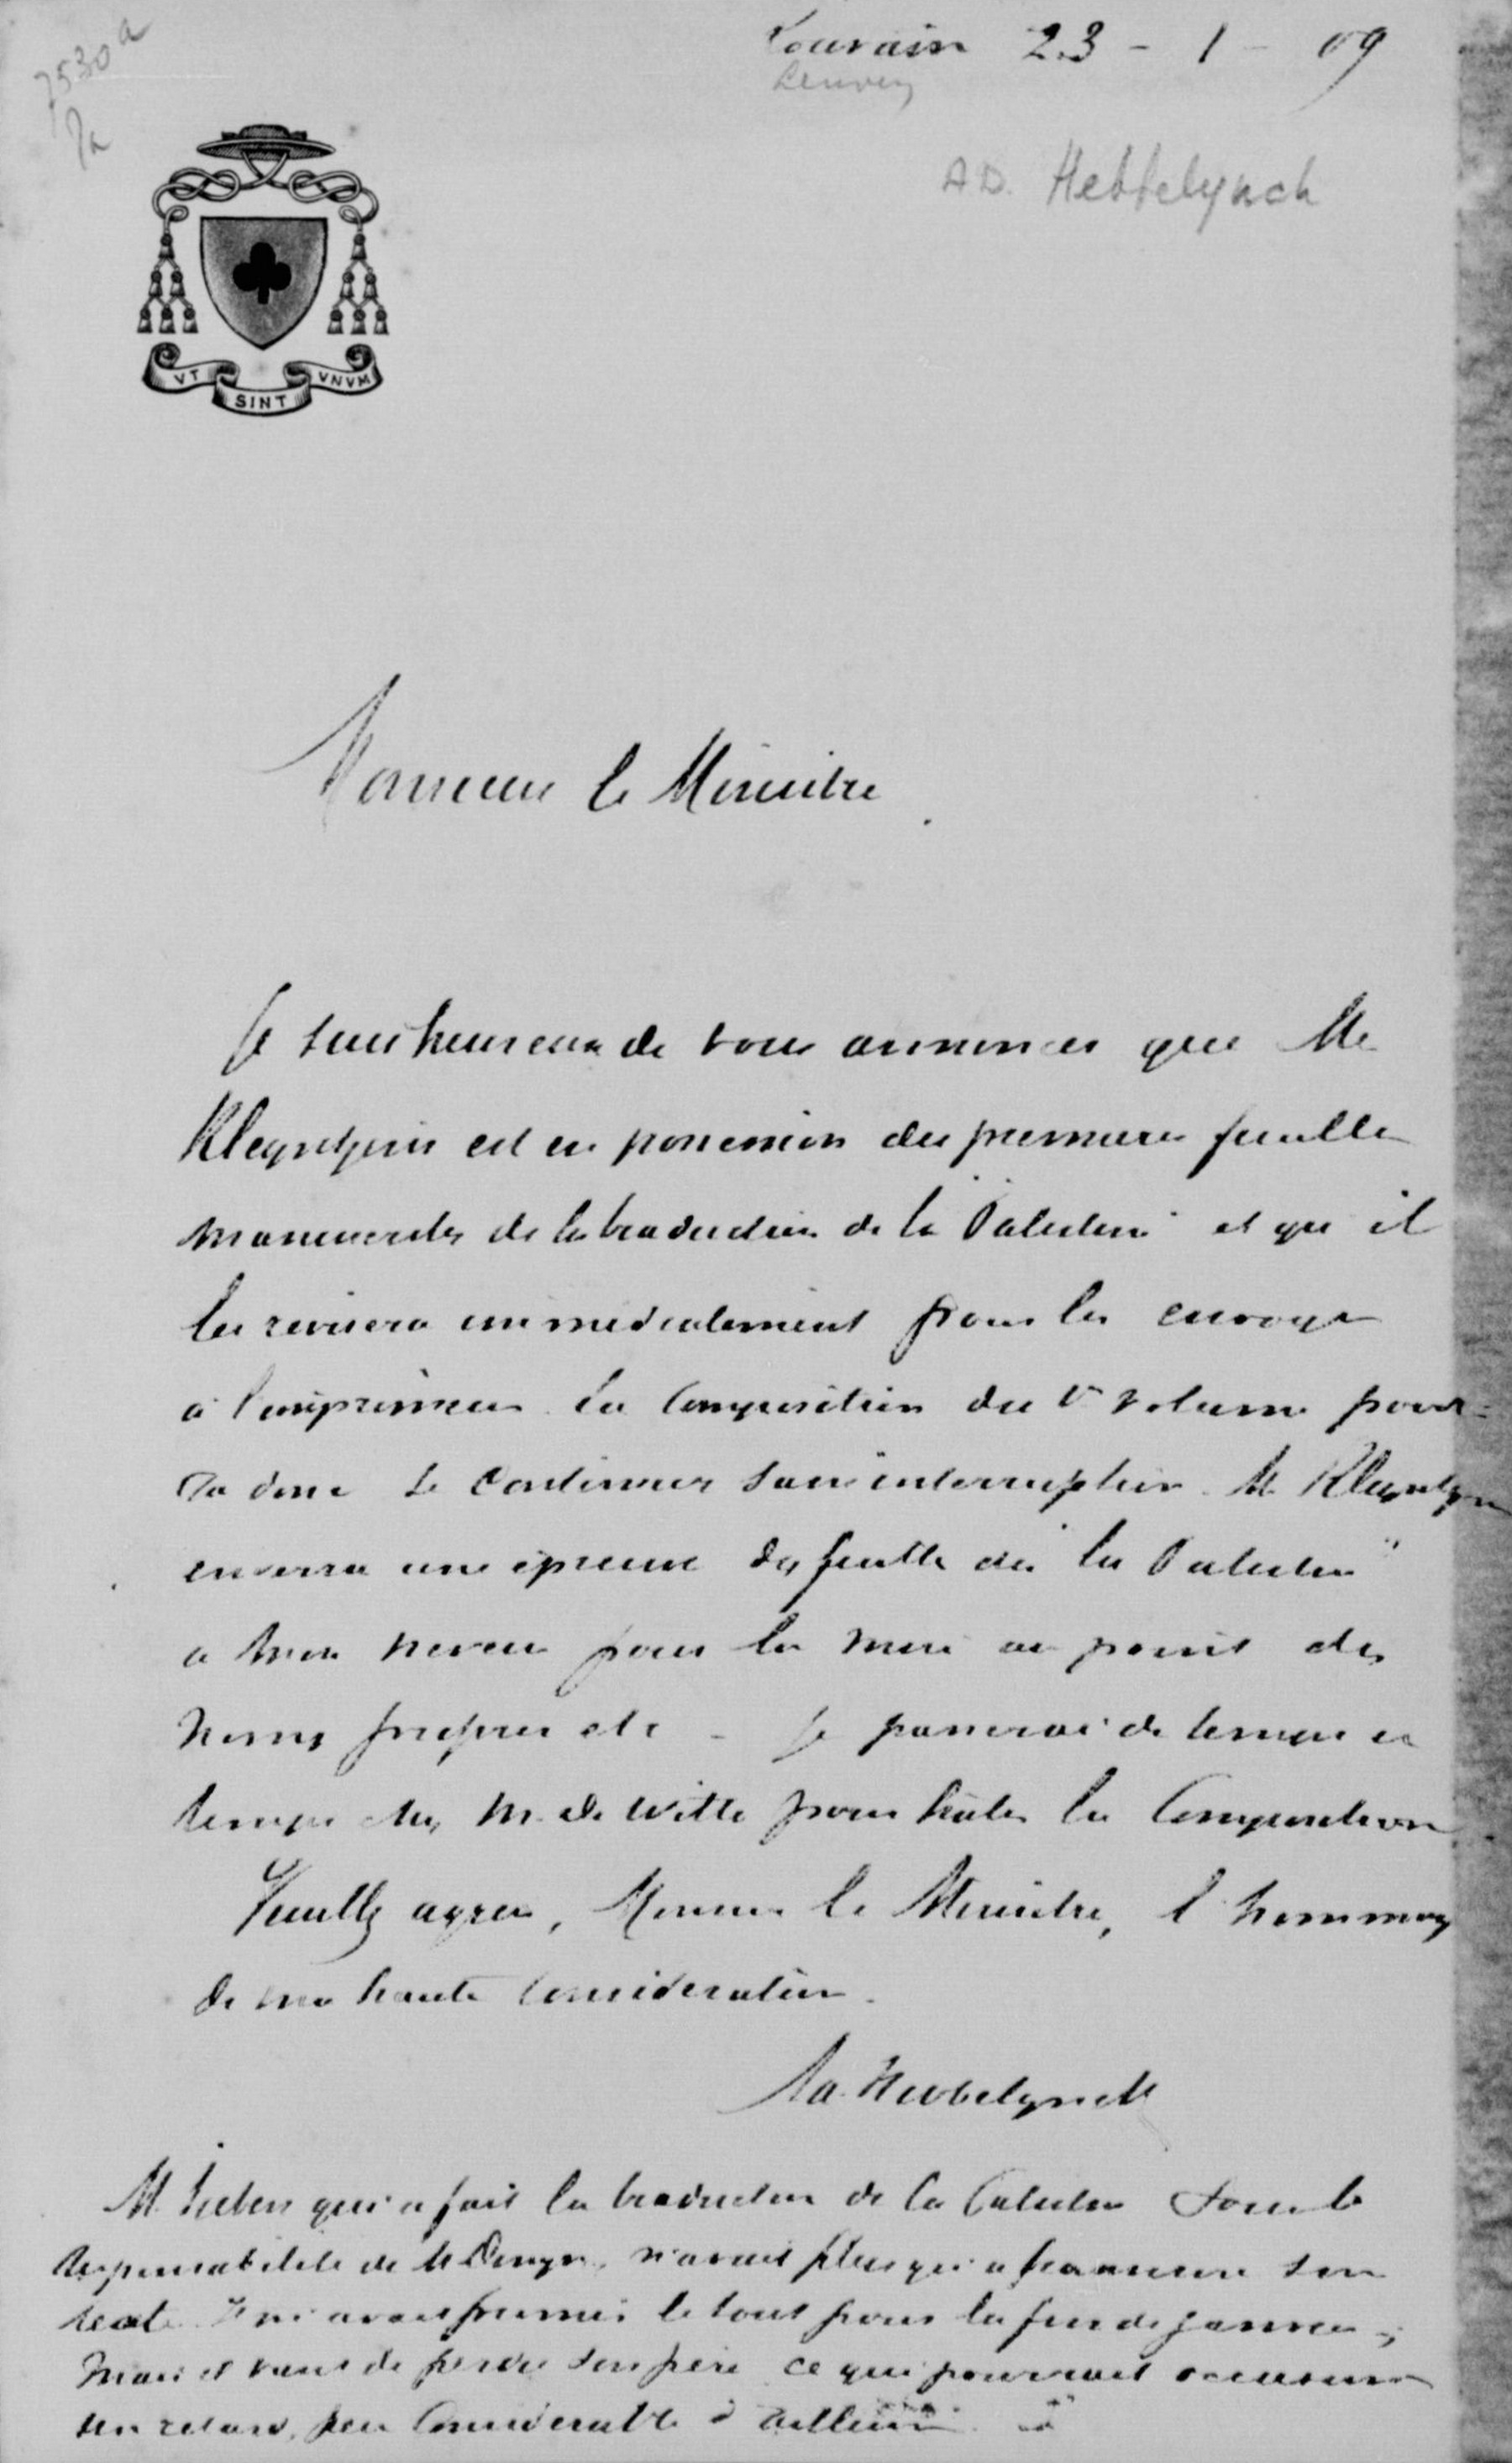 7530 a
Louvain 23 - 1 - 09
Leuven
AD. Hebbelynck
VT SINT VNVM
Monsieur le Ministre
Je suis heureux de vous annoncer que Mr
est en possession des premiers feuilles
manuscrites de la traduction de la Palestine" et qu'il
les revisera immédiatement pour les envoyer
à l'imprimeur. La composition du volume pour=
ra donc se continuer sans interruption. M.
enverra une épreuve des feuilles de "la Palestine"
a mon neveu pour la mise au point des
noms propres etc - Je passerai de temps en
temps chez M. de Witte pour hâter la composition
Veuillez agréer, Monsieur le Ministre, l'hommage
de ma haute considération.
Ad. Hebbelynck
M. qui a fait la traduction de la Palestine sous la
responsabilité de M. n'avait plus qu'a transcrire son
texte. Il m'avait promis le tout pour la fin de janvier;
mais il vient de perdre son père ce qui pourrait occasionner
un retard, peu considérable d'ailleurs.